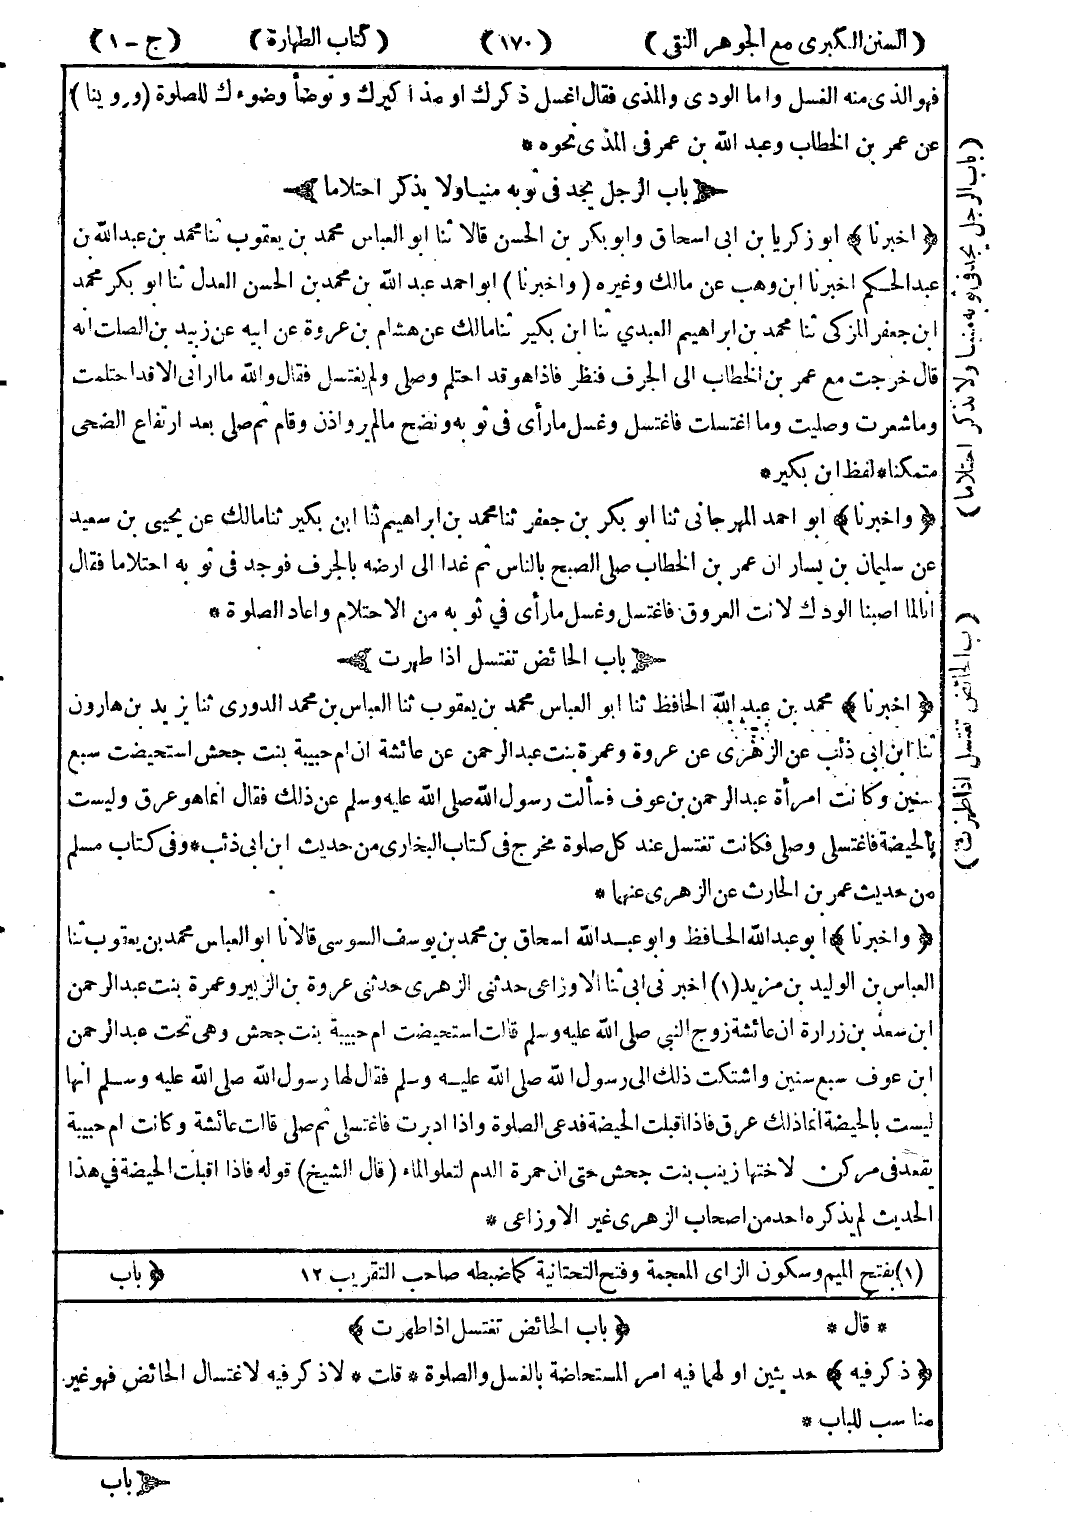 ( السنن الكبرى مع الجوهر النقى )   (١٧٠)   ( كتاب الطهارة )   ( ج - ١ )
فهو الذى منه الغسل واما الودى والمذى فقال اغسل ذكرك او مذاكيرك وتوضأ وضوءك للصلوة (وروينا)
عن عمر بن الخطاب وعبد الله بن عمر فى المذى نحوه *
باب الرجل يجد فى ثوبه منيا ولا يذكر احتلاما
﴿ اخبرنا ﴾ ابو زكريا بن ابى اسحاق وابو بكر بن الحسن قالا ثنا ابو العباس محمد بن يعقوب ثنا محمد بن عبدالله بن
عبدالحكم اخبرنا ابن وهب عن مالك وغيره ( واخبرنا ) ابو احمد عبد الله بن محمد بن الحسن العدل ثنا ابو بكر محمد
ابن جعفر المزكى ثنا محمد بن ابراهيم العبدي ثنا ابن بكير ثنا مالك عن هشام بن عروة عن ابيه عن زبيد بن الصلت انه
قال خرجت مع عمر بن الخطاب الى الجرف فنظر فاذا هو قد احتلم وصلى ولم يغتسل فقال والله ما ارانى الا قد احتلمت
وما شعرت وصليت وما اغتسلت فاغتسل وغسل ما رأى فى ثوبه ونضح ما لم ير واذن وقام ثم صلى بعد ارتفاع الضحى
متمكنا * لفظ ابن بكير *
﴿ واخبرنا ﴾ ابو احمد المهرجانى ثنا ابو بكر بن جعفر ثنا محمد بن ابراهيم ثنا ابن بكير ثنا مالك عن يحيى بن سعيد
عن سليمان بن يسار ان عمر بن الخطاب صلى الصبح بالناس ثم غدا الى ارضه بالجرف فوجد فى ثوبه احتلاما فقال
انا لما اصبنا الودك لانت العروق فاغتسل وغسل ما رأى في ثوبه من الاحتلام واعاد الصلوة *
باب الحائض تغتسل اذا طهرت
﴿ اخبرنا ﴾ محمد بن عبد الله الحافظ ثنا ابو العباس محمد بن يعقوب ثنا العباس بن محمد الدورى ثنا يزيد بن هارون
ثنا ابن ابى ذئب عن الزهرى عن عروة وعمرة بنت عبدالرحمن عن عائشة ان ام حبيبة بنت جحش استحيضت سبع
سنين وكانت امرأة عبدالرحمن بن عوف فسألت رسول الله صلى الله عليه وسلم عن ذلك فقال انما هو عرق وليست
بالحيضة فاغتسلى وصلى فكانت تغتسل عند كل صلوة مخرج فى كتاب البخارى من حديث ابن ابى ذئب * وفى كتاب مسلم
من حديث عمر بن الحارث عن الزهرى عنها *
﴿ واخبرنا ﴾ ابو عبدالله الحافظ وابو عبدالله اسحاق بن محمد بن يوسف السوسى قالا نا ابو العباس محمد بن يعقوب ثنا
العباس بن الوليد بن مزيد (١) اخبرنى ابى ثنا الاوزاعى حدثنى الزهرى حدثنى عروة بن الزبير وعمرة بنت عبدالرحمن
ابن سعد بن زرارة ان عائشة زوج النبي صلى الله عليه وسلم قالت استحيضت ام حبيبة بنت جحش وهى تحت عبدالرحمن
ابن عوف سبع سنين واشتكت ذلك الى رسول الله صلى الله عليه وسلم فقال لها رسول الله صلى الله عليه وسلم انها
ليست بالحيضة انما ذلك عرق فاذا اقبلت الحيضة فدعى الصلوة واذا ادبرت فاغتسلى ثم صلى قالت عائشة وكانت ام حبيبة
يقعد فى مركن لاختها زينب بنت جحش حتى ان حمرة الدم لتعلو الماء ( قال الشيخ ) قوله فاذا اقبلت الحيضة في هذا
الحديث لم يذكره احد من اصحاب الزهرى غير الاوزاعى *
(١) بفتح الميم وسكون الزاى المعجمة وفتح التحتانية كما ضبطه صاحب التقريب ١٢   ﴿ باب
* قال *   ﴿ باب الحائض تغتسل اذا طهرت ﴾
﴿ ذكر فيه ﴾ حديثين اولهما فيه امر المستحاضة بالغسل والصلوة * قلت * لا ذكر فيه لاغتسال الحائض فهو غير
مناسب للباب *
باب
(باب الرجل يجد فى ثوبه منيا ولا يذكر احتلاما)
(ب الحائض تغتسل اذا طهرت)